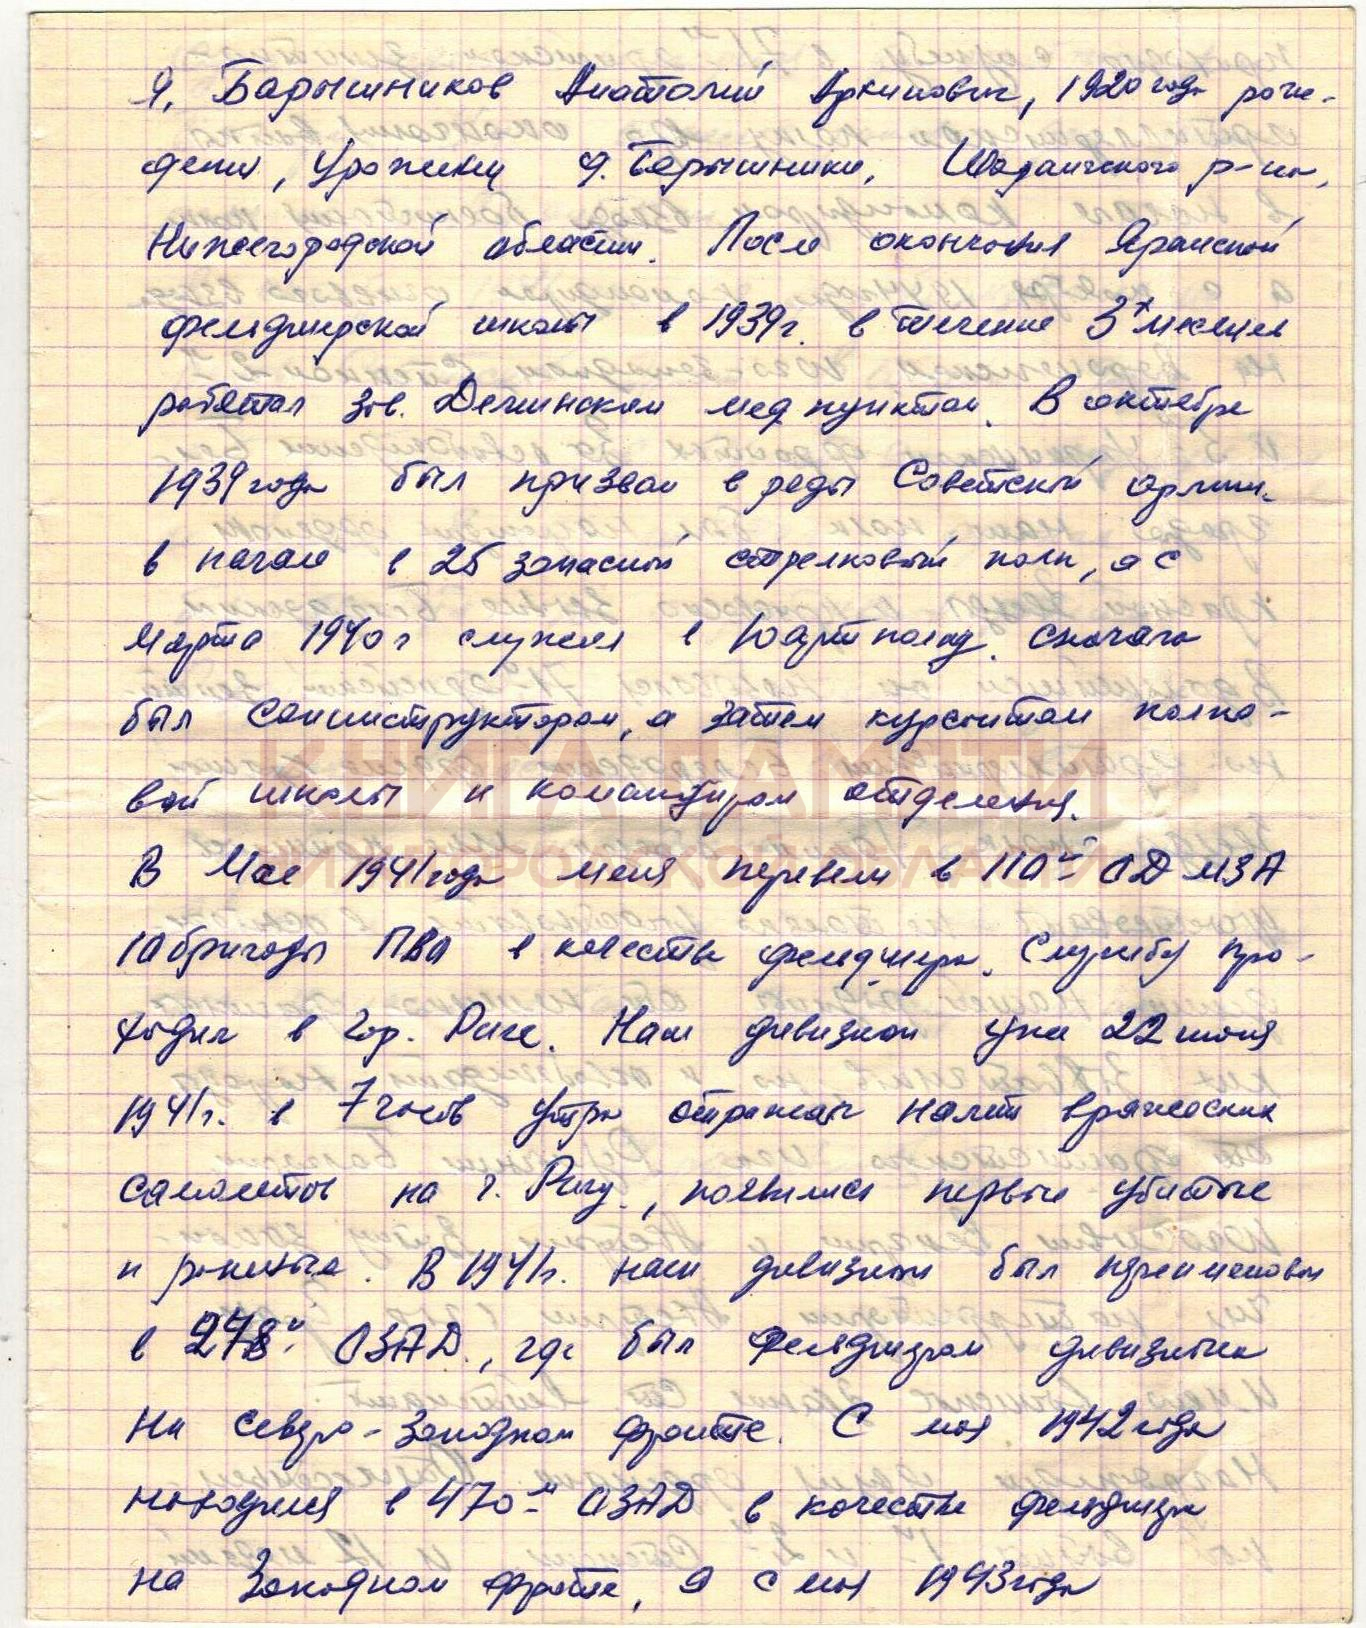 Я, Барышников Анатолий Архипович, 1920 года рож-
дения, уроженец д. Барышники, Шарангского р-на,
Нижегородской области. После окончания Яранской
фельдшерской школы в 1939г. в течение 3х месяцев
работал зав. медпунктом. В октябре
1939 года был призван в ряды Советской армии.
в начале в 25 запасной стрелковый полк, а с
марта 1940 г служил в 10 артполку. Сначала
был санинструктором, а затем курсантом полко-
вой школы и командиром отделения.
В Мае 1941 года меня перевели в 110й ОД МЗА
10 бригады ПВО в качестве фельдшера. Службу про-
ходил в гор. Риге. Наш дивизион уже 22 июня
1941г. в 7 часов утра отражал налет вражеских
самолетов на г. Ригу, появились первые убитые
и раненые. В 1941г. наш дивизион был переименован
в 278й ОЗАД, где был фельдшером дивизиона
на Северо-Западном фронте. С мая 1942 года
находился в 470м ОЗАД в качестве фельдшера
на Западном фронте, а с мая 1943 года
КНИГА ПАМЯТИ
НИЖЕГОРОДСКОЙ ОБЛАСТИ